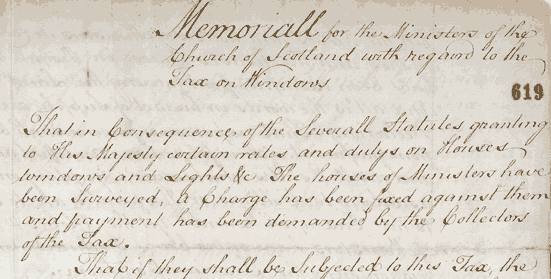 Memoriall for the Ministers of the
Church of Scotland with regard to the
Tax on Windows
619
That in Consequence of the Severall Statutes granting
to His Majesty certain rates and dutys on Houses
windows and Lights &c The houses of Ministers have
been Surveyed, a Charge has been fixed against them
and payment has been demanded by the Collectors
of the Tax.
That if they shall be Subjected to this Tax, the